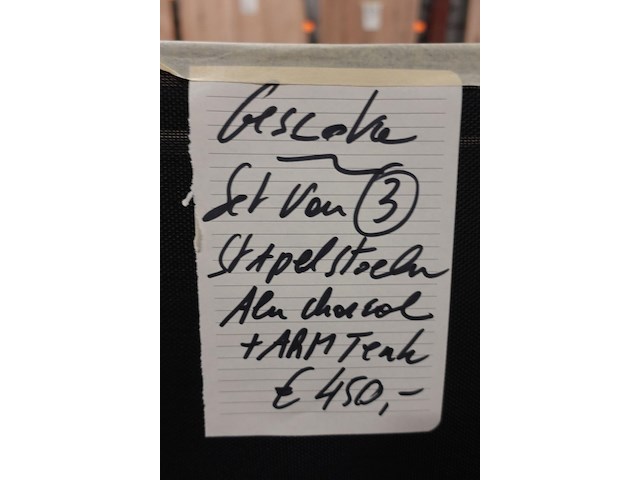 Gescova
Set van 3
Stapelstoelen
Alu charcol
+ ARM Teak
€ 450,-